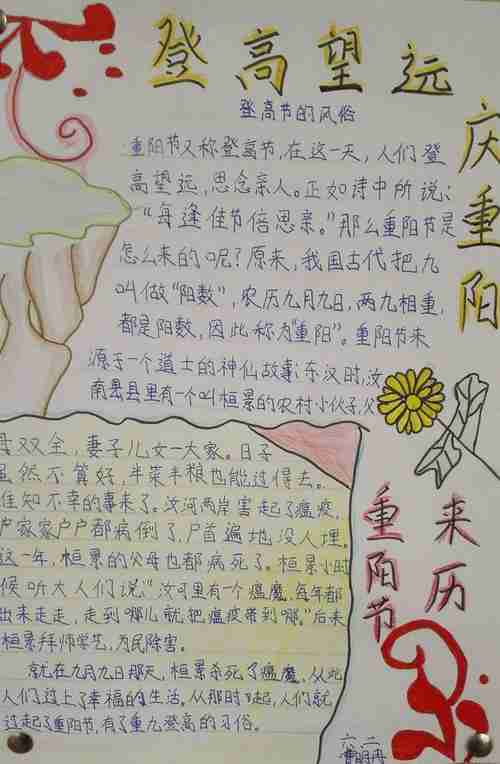 登高望远
庆重阳
登高节的风俗
重阳节又称登高节，在这一天，人们登
高望远，思念亲人。正如诗中所说：
“每逢佳节倍思亲。”那么重阳节是
怎么来的呢？原来，我国古代把九
叫做“阳数”，农历九月九日，两九相重，
都是阳数，因此称为“重阳”。重阳节来
源于一个道士的神仙故事：东汉时，汝
南县县里有一个叫桓景的农村小伙子，父
母双全，妻子儿女一大家。日子
虽然不算好，半菜半粮也能过得去。
佳知不幸的事来了。汝河两岸害起了瘟疫，
户家家户户都病倒了，尸首遍地没人埋。
这一年，桓景的父母也都病死了。桓景小时
候听大人们说：“汝河里有一个瘟魔，每年都
出来走走，走到哪儿就把瘟疫带到哪。”后来
桓景拜师学艺，为民除害。
就在九月九日那天，桓景杀死了瘟魔，从此
人们过上了幸福的生活。从那时起，人们就
过起了重阳节，有了重九登高的习俗。
重阳节
来历
六 二
曹明冉